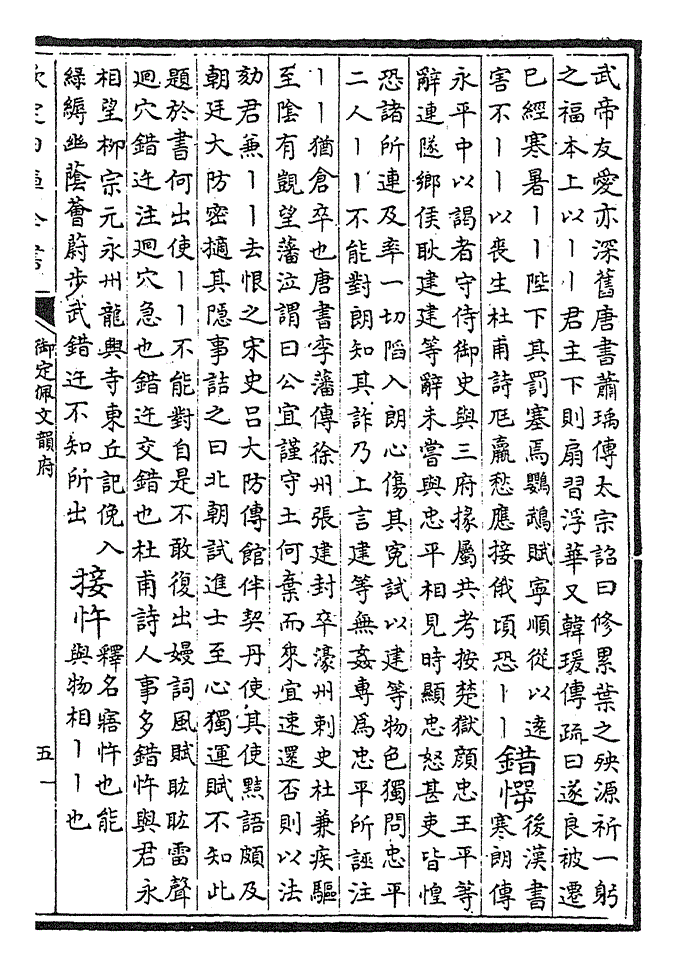 武帝友愛亦深舊唐書蕭瑀傳太宗詔曰修累葉之殃源祈一躬
之福本上以丨丨君主下則扇習浮華又韓瑗傳疏曰遂良被遷
已經寒暑丨丨陛下其罰塞焉鸚鵡賦寧順從以遠
害不丨丨以喪生杜甫詩尫羸愁應接俄頃恐丨丨
錯愕
後漢書
寒朗傳
永平中以謁者守侍御史與三府掾屬共考按楚獄顏忠王平等
辭連隧鄉侯耿建建等辭未嘗與忠平相見時顯忠怒甚吏皆惶
恐諸所連及率一切陷入朗心傷其寃試以建等物色獨問忠平
二人丨丨不能對朗知其詐乃上言建等無姦專爲忠平所誣注
丨丨猶倉卒也唐書李藩傳徐州張建封卒濠州刺史杜兼疾驅
至陰有觀望藩泣謂曰公宜謹守土何棄而來宜速還否則以法
劾君兼丨丨去恨之宋史呂大防傳館伴契丹使其使黠語頗及
朝廷大防密擿其隱事詰之曰北朝試進士至心獨運賦不知此
題於書何出使丨丨不能對自是不敢復出嫚詞風賦眐眐雷聲
迴穴錯迕注迴穴急也錯迕交錯也杜甫詩人事多錯忤與君永
相望柳宗元永州龍興寺東丘記俛入
綠縟幽蔭薈蔚步武錯迕不知所出
接忤
釋名寤忤也能
與物相丨丨也
御定佩文韻府
五一